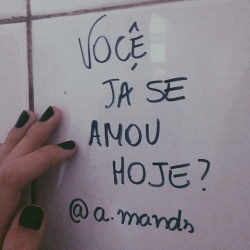 VOCÊ
JÁ SE
AMOU
HOJE?
@a.mands